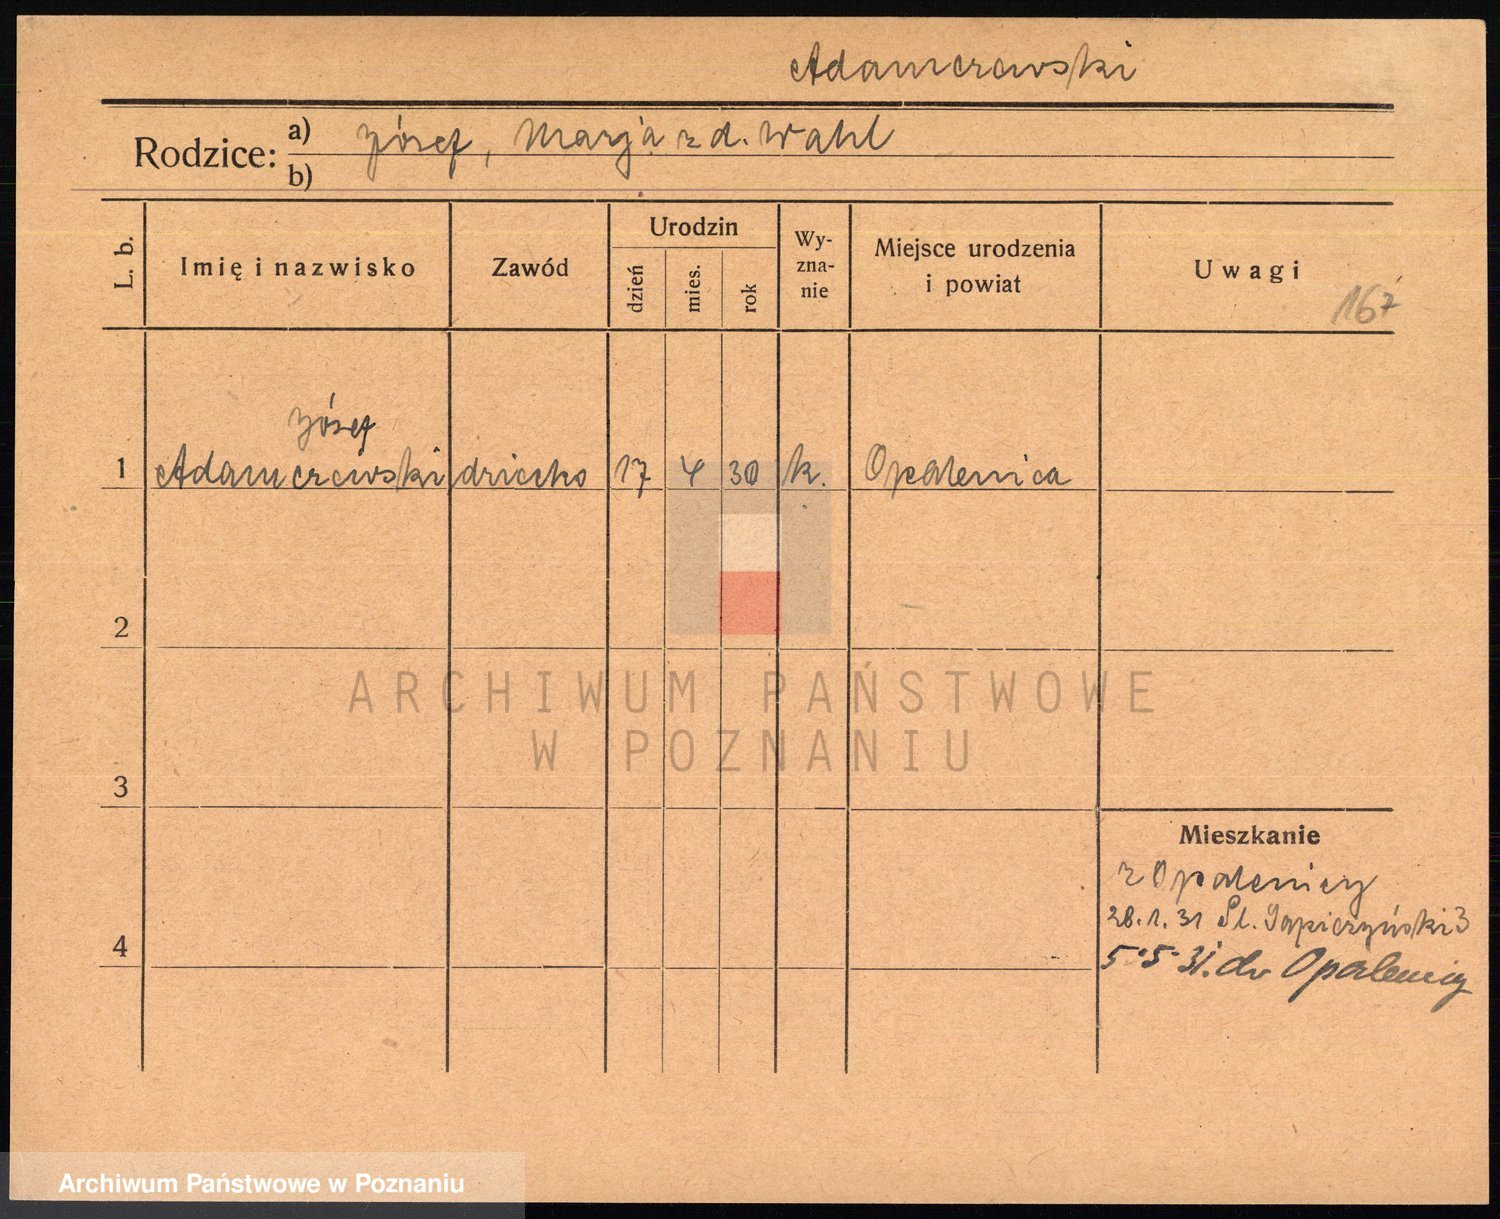 Adamczewski
Rodzice: a) Józef, Marja z d. Wahl
b)
L. b.
Imię i nazwisko
Zawód
Urodzin
dzień
mies.
rok
Wy-
zna-
nie
Miejsce urodzenia
i powiat
Uwagi
167
Józef
1 Adamczewski dziecko 17 4 30 k. Opalenica
2
3
4
Mieszkanie
z Opalenicy
28.1.31 Pl. Sapieżyński 3
5.5.31. do Opalenicy
ARCHIWUM PAŃSTWOWE
W POZNANIU
Archiwum Państwowe w Poznaniu